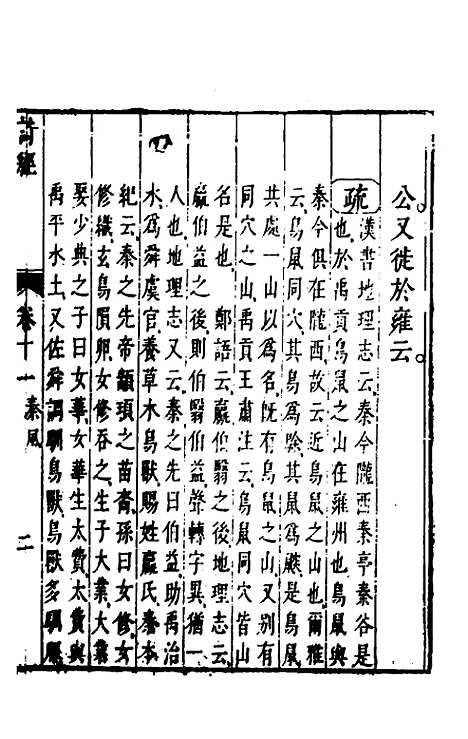 公又徙於雍云。
疏 漢書地理志云秦今隴西秦亭秦谷是
也於禹貢鳥鼠之山在雍州也鳥鼠與
秦今俱在隴西故云近鳥鼠之山也爾雅
云鳥鼠同穴其鳥為鵌其鼠為鼵是鳥鼠
共處一山以為名既有鳥鼠之山又別有
同穴之山禹貢王肅注云鳥鼠同穴皆山
名是也 鄭語云嬴伯翳之後地理志云
嬴伯益之後則伯翳伯益聲轉字異猶一
人也地理志又云秦之先曰伯益助禹治
水為舜虞官養草木鳥獸賜姓嬴氏秦本
紀云秦之先帝顓頊之苗裔孫曰女修女
修織玄鳥隕卵女修吞之生子大業大業
娶少典之子曰女華女華生太費太費與
禹平水土又佐舜調馴鳥獸鳥獸多馴服
詩經 卷十一 秦風 二